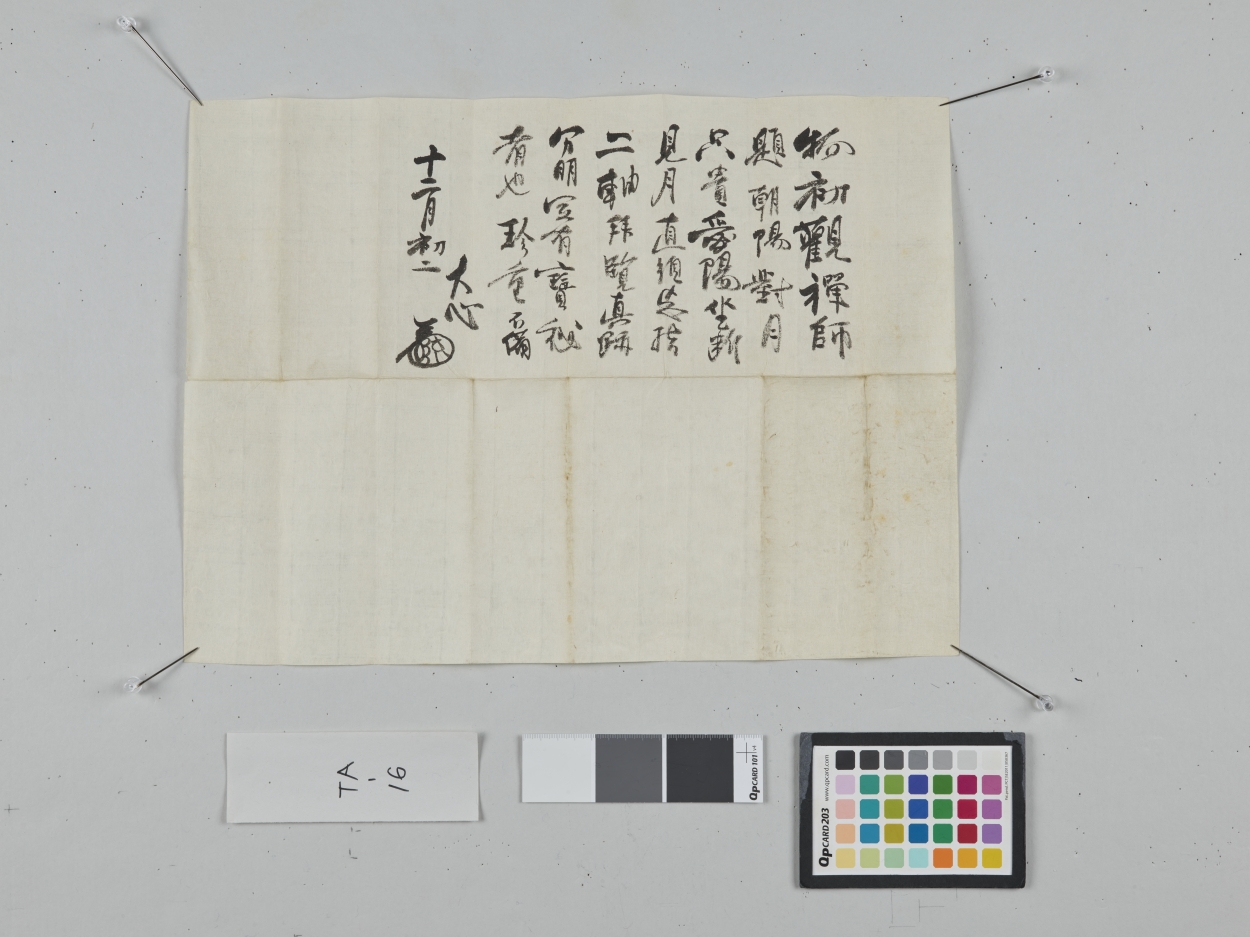 物初觀禪師
題朝陽對月
只貴愛陽坐斷
見月直須忘指
二軸拜覽真跡
分明宜有寶秘
者也珍重不備
大心
十二月初二
TA-16
QPCARD 101 v4
QPCARD 203
www.qpcard.com